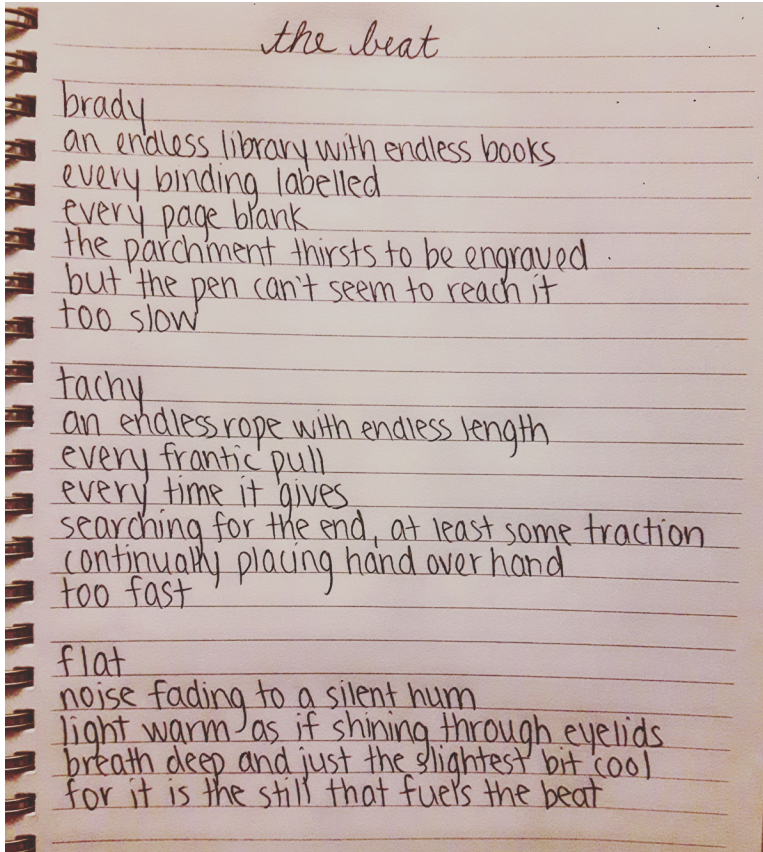 the beat
brady
an endless library with endless books
every binding labelled
every page blank
the parchment thirsts to be engraved
but the pen can't seem to reach it
too slow
tachy
an endless rope with endless length
every frantic pull
every time it gives
searching for the end, at least some traction
continually placing hand over hand
too fast
flat
noise fading to a silent hum
light warm as if shining through eyelids
breath deep and just the slightest bit cool
for it is the still that fuels the beat